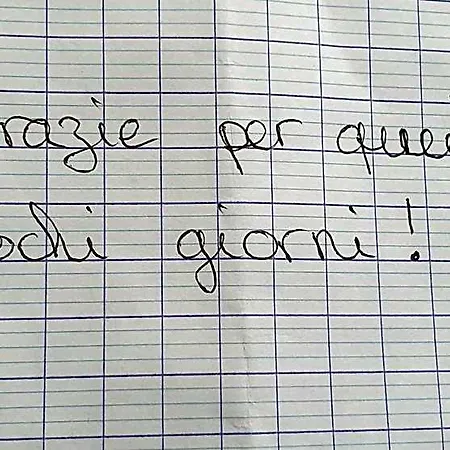 razie per que
ochi giorni!